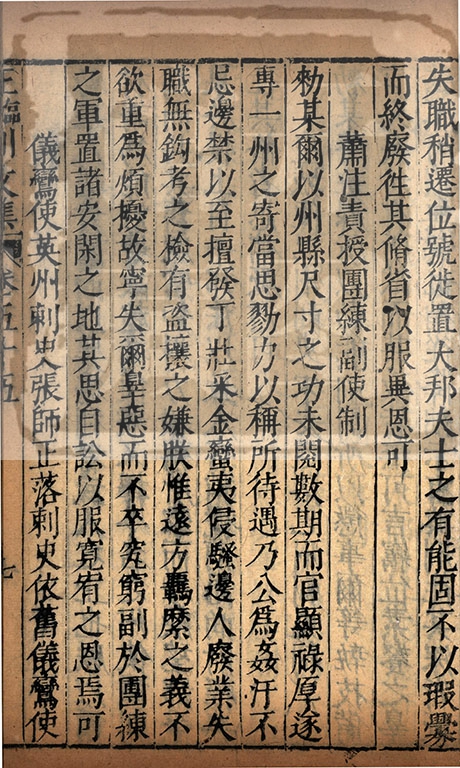 失職稍遷位號徙置大邦夫士之有能固不以瑕釁
而終廢徃其脩省以服異恩可
蕭注責授團練副使制
勑某爾以州縣尺寸之功未閱數期而官顯祿厚遂
專一州之寄當思勠力以稱所待遇乃公為姦汙不
忌邊禁以至擅發丁壯采金蠻夷侵騷邊人廢業失
職無鈎考之檢有盜攘之嫌朕惟遠方羈縻之義不
欲重為煩擾故寧失爾辠惡而不卒究窮副於團練
之軍置諸安閑之地其思自訟以服寬宥之恩焉可
儀鸞使英州刺史張師正落刺史依舊儀鸞使
王臨川文集 卷五十五 七